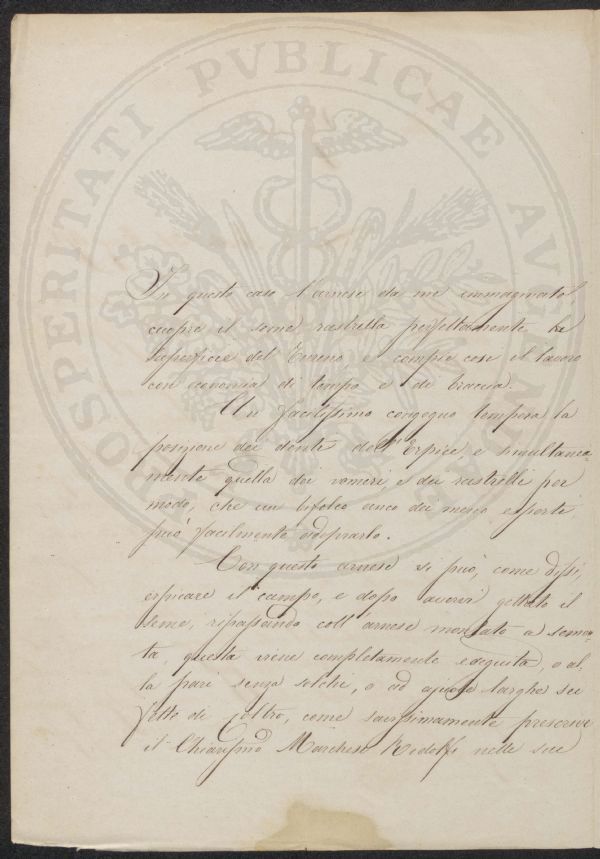 PROSPERITATI PVBLICAE AVGENDAE
In questo caso l'arnese da me immaginato,
cuopre il seme rastrella perfettamente la
superficie del Terreno e compie così il lavoro
con economia di tempo e di braccia.
Un facilissimo congegno tempera la
posizione dei denti dell'Erpice, e simultanea
mente quella dei vomeri, e dei rastrelli per
modo, che un bifolco anco dei meno esperti
può facilmente adoprarlo.
Con questo arnese si può, come dissi,
erpicare il campo, e dopo avervi gettato il
seme, ripassando coll'arnese montato a semen
ta, questa viene completamente eseguita, o al
la pari senza solchi, o ad ajuole larghe sei
sette di coltro, come saviissimamente prescrive
il Chiarissimo Marchese Ridolfi nelle sue